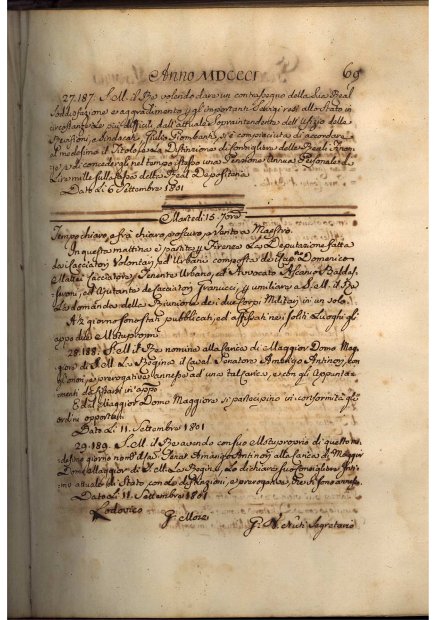 Anno MDCCCI 69
27.187. S. M. il Re volendo dare un contrassegno della sua Real
Soddisfazione e aggradimento gl'importanti Servizi resi allo Stato in
circostanze le più difficili dall'attuale Soprintendente dell'Ufizio delle
Revisioni, e Sindacati Giulio Piombanti, si è compiaciuta di accordare
al medesimo il Titolo, e la Distinzione di Consigliere delle Reali Finanze
e di concedergli nel tempo stesso una Pensione Annua Personale di
Lire mille sulla Cassa della Real Depositeria
Dato Li 6 Settembre 1801
Martedì 15. 7bre
Tempo chiaro, e fra chiaro, e oscuro, e Vento a Maestro.
In questa mattina è partita Firenze La Deputazione fatta
dai Cacciatori Volontari, ed Urbani composta de Domenico
Mattei Cacciatore, Tenente Urbano, ed Avvocato Ascanio Baldasseroni,
ed Ajutante de Cacciatori Franucci, umiliare a S. M. il Re
La domanda della Riunione dei due Corpi Militari in un solo.
A giorno sono stati pubblicati, ed affissati nei soliti Luoghi gli
appo due Motuproprj
28.188. S. M. il Re nomina alla Carica di Maggior Domo Maggiore
di S. M. La Regina il Caval. Senatore Amerigo Antinori, con
gli onori, e prerogative annesse ad una tal Carica, e con gli Appuntamenti
E del Maggior Domo Maggiore si partecipino in conformità gli
ordini opportuni
Dato Li 11. Settembre 1801
29.189. S. M. il Re avendo con suo Motuproprio di questo medesimo
giorno Senat. Amerigo Antinori alla Carica di Maggior
Domo Maggiore di S. M. La Regina, Lo dichiara suo Consigliere Intimo
attuale di Stato con le distinzioni, e prerogative, che vi sono annesse
Dato Li 11 Settembre 1801
Lodovico
G. Mozzi
G. Segretario